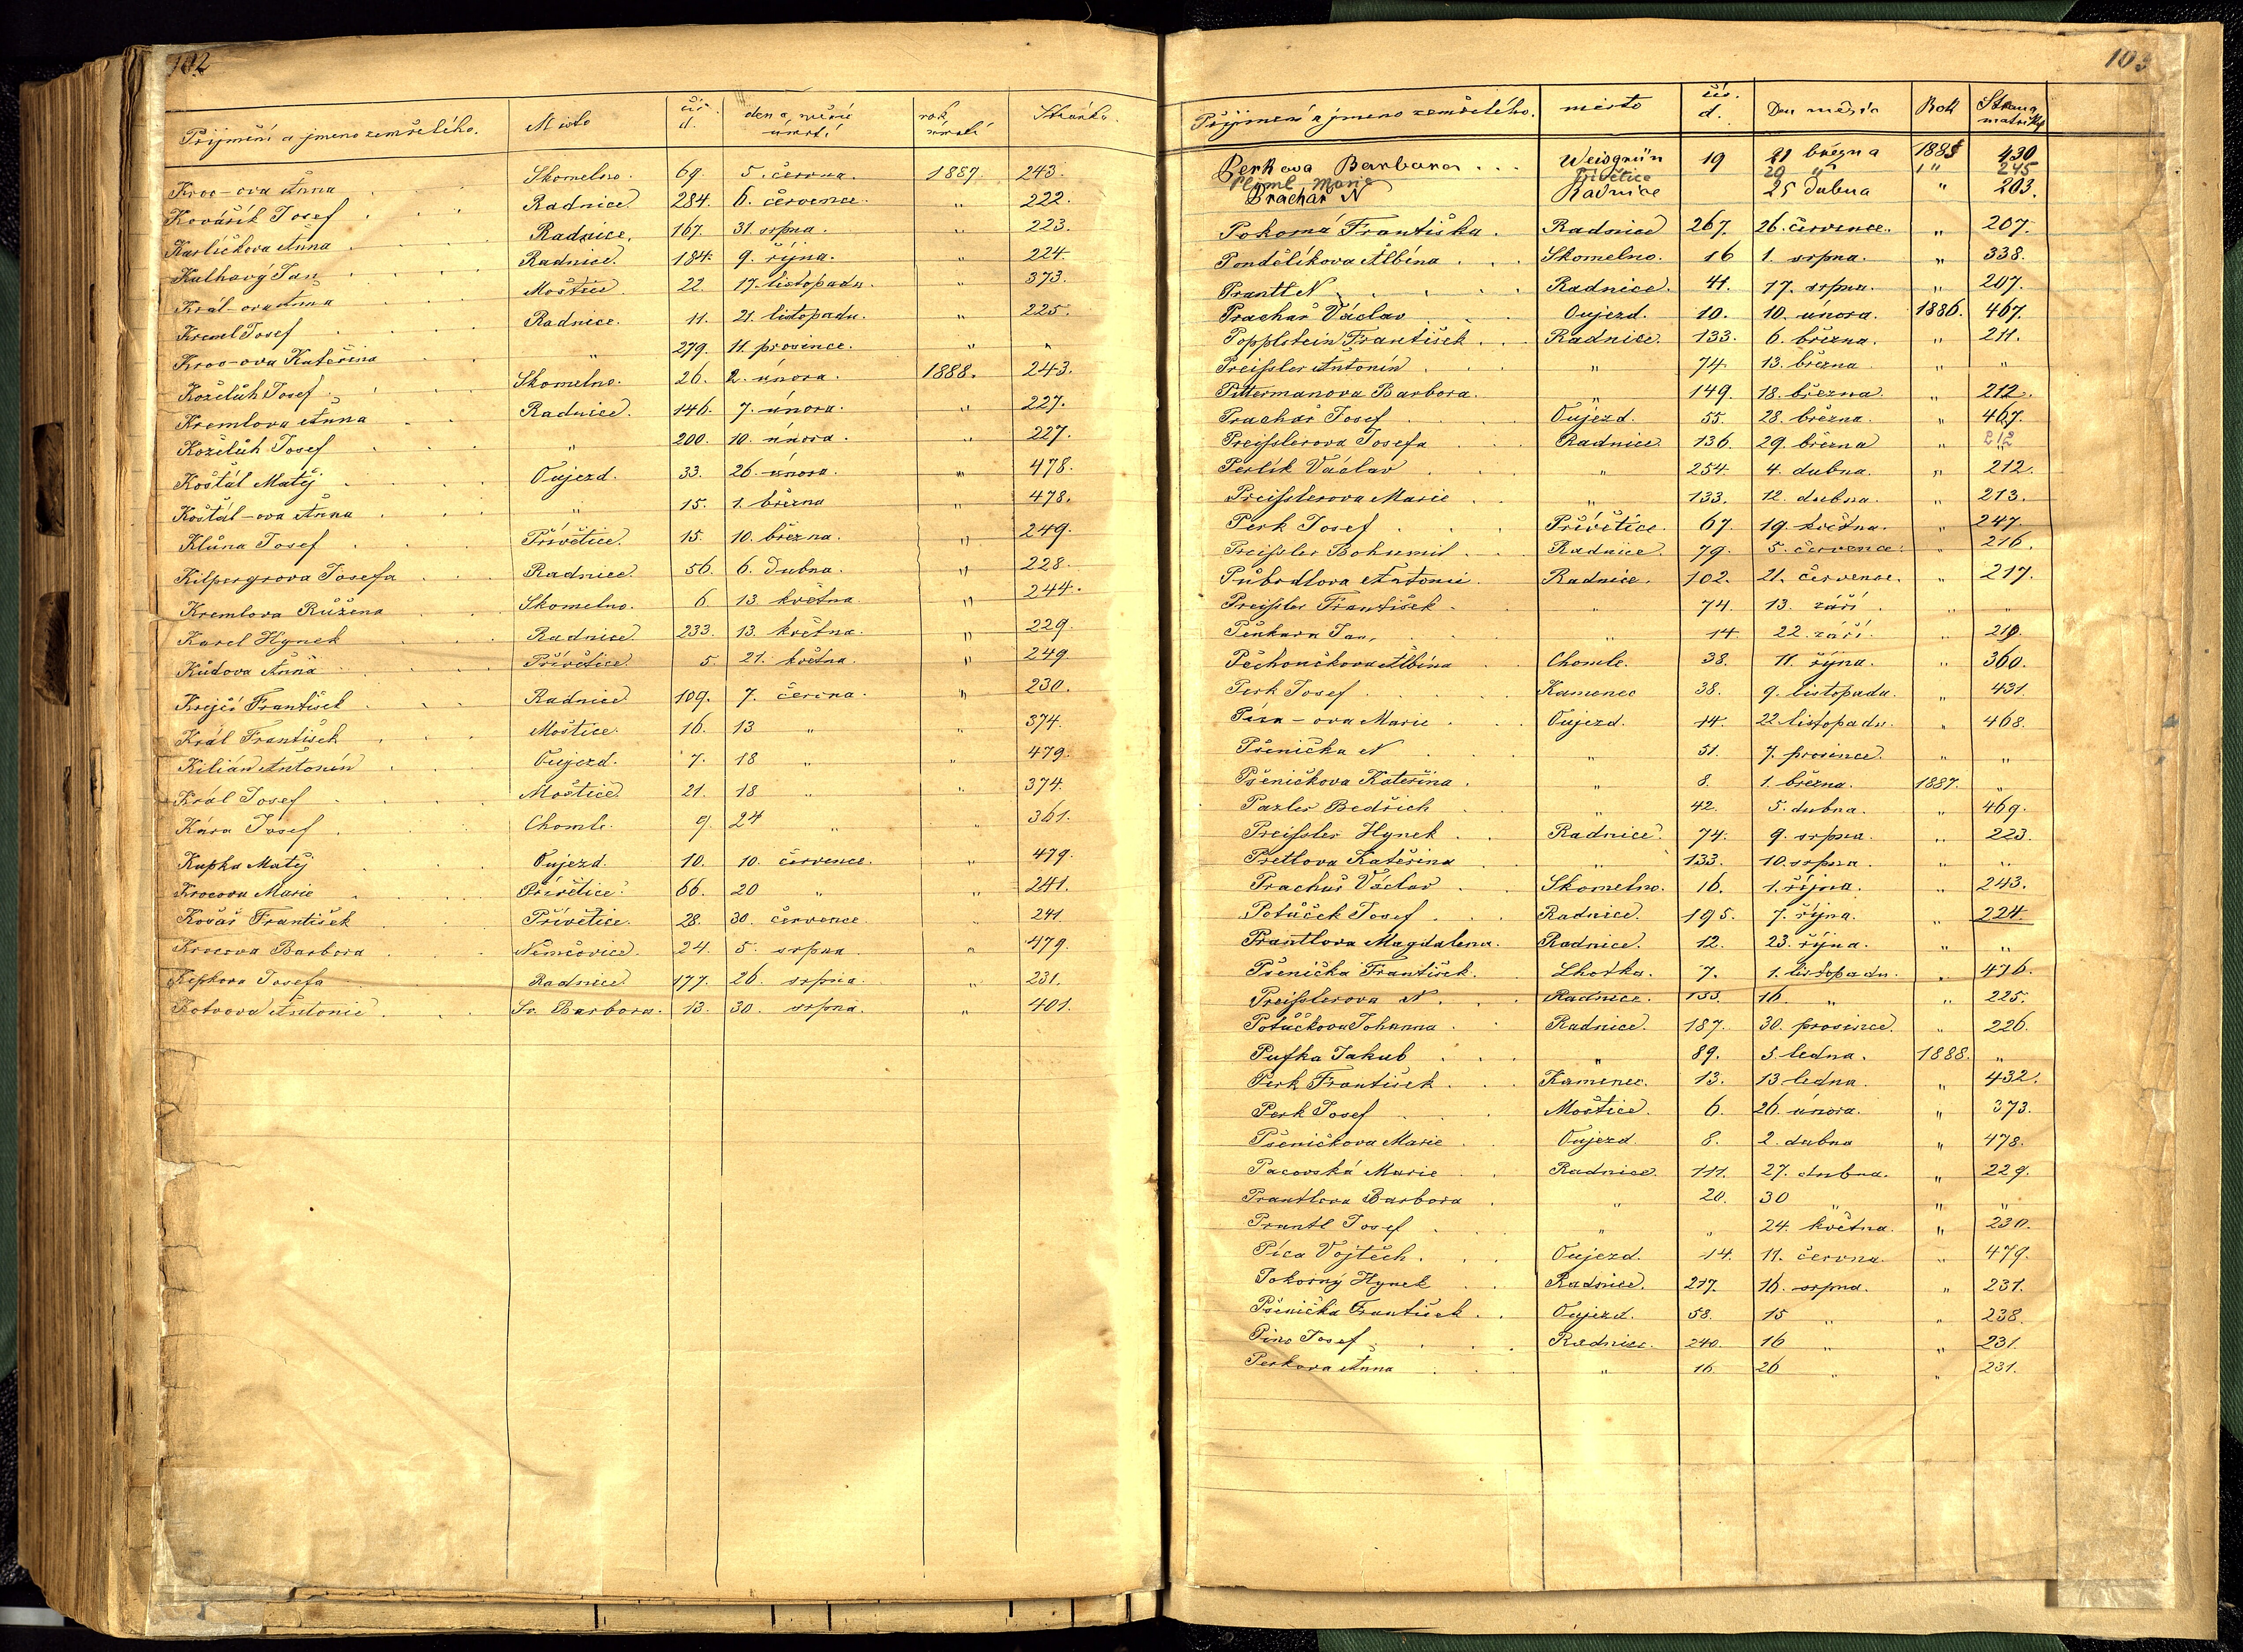 102
Přijmění a jmeno zemřelého. Místo čís. d. den a měsíc úmrtí rok úmrtí Stránka.
Kroc-ova Anna Skomelno. 69. 5. června. 1887 243.
Kovářík Josef Radnice 284. 6. července. " 222.
Karlíčkova Anna Radnice. 167. 31 srpna. " 223.
Kalhavý Jan Radnice. 184. 9. října. " 224.
Král-ova Anna Moštice 22. 17. listopadu. " 373.
Kreml Josef Radnice. 11. 21. listopadu. " 225.
Kroc-ova Kateřina " 279. 11. prosince. " "
Koželuh Josef Skomelno. 26. 2. února. 1888. 243.
Kremlova Anna Radnice. 146. 7. února. " 227.
Koželuh Josef " 200. 10. února. " 227.
Košťál Matěj Oujezd. 33. 26. února. " 478.
Košťál-ova Anna " 15. 1. března " 478.
Kluna Josef Přívětice. 15. 10. března. " 249.
Kilpergrova Josefa Radnice. 56. 6. Dubna. " 228.
Kremlova Růžena Skomelno. 6 13. května " 244.
Karel Hynek Radnice 233. 13. května. " 229.
Kudova Anna Přívětice 5. 21. května " 249.
Krejčí František Radnice 109. 7. června. " 230.
Král František Moštice. 16. 13 " " 374.
Kilián Antonín Oujezd. 7. 18 " " 479.
Král Josef Moštice 21. 18 " " 374.
Kára Josef Chomle. 9. 24 " " 361.
Kupka Matěj Oujezd. 10. 10. července. " 479.
Krocova Marie Přívětice. 66. 20 " " 241.
Kovář František Přívětice. 28. 30. července " 241.
Krocova Barbora Němčovice. 24. 5. srpna " 479.
Kepkova Josefa Radnice 177. 26. srpna. " 231.
Kotvova Antonie Sv. Barbora. 13. 30. srpna. " 401.
103
Přijmení a jmeno zemřelého. místo čís. d. Den měsíc Rok Strana matriky
Perkova Barbora Weisgrün 19 21 března 1885 430
Marie Přívětice 20 " " 245
Prachař N Radnice 25 Dubna " 203.
Pokorná Františka. Radnice 267. 26. července. " 207.
Pondělíkova Albína Skomelno. 16 1. srpna. " 338.
Prantl N Radnice. 41. 17. srpna. " 207.
Prachař Václav Oujezd. 10. 10. února. 1886. 467.
Popplstein František Radnice. 133. 6. března. " 211.
Preissler Antonín " 74. 13. března " "
Pittermanova Barbora. " 149. 18. března. " 212.
Prachař Josef Oujezd. 55. 28. března. " 467.
Preysslerova Josefa Radnice 136. 29. března " 212
Perlík Václav " 254. 4. dubna. " 212.
Preisslerova Marie " 133. 12. dubna. " 213.
Perk Josef Přívětice. 67. 19. května. " 247.
Preissler Bohumil Radnice. 79. 5. července. " 216.
Antonie Radnice. 102. 21. července. " 217.
Preissler František " 74. 13. září. " "
Jan " 14. 22. září. "
Pěchoučkova Albína Chomle. 38. 11. října. " 360.
Perk Josef Kamenec 38. 9. listopadu. " 431.
Píca-ova Marie Oujezd. 14. 22 listopadu. " 468.
Pšenička N " 51. 7. prosince. " "
Pšeničkova Kateřina. " 8. 1. března. 1887. "
Pazler Bedřich " 42. 5. dubna. " 469.
Preissler Hynek Radnice. 74. 9. srpna. " 223.
Pretlova Kateřina " 133. 10. srpna. " "
Prachař Václav Skomelno. 16. 1. října. " 243.
Potůček Josef Radnice. 195. 7. října. " 224
Prantlova Magdalena. Radnice. 12. 23. října. " "
Pšenička František. Lhotka. 7. 1. listopadu. " 476.
Preisslerova N Radnice. 133. 16. " " 225.
Potůčkova Johanna Radnice. 187. 30. prosince. " 226.
Pufka Jakub " 89. 5. ledna. 1888. "
Perk František Kamenec. 13. 13 ledna. " 432.
Perk Josef Moštice. 6. 26. února. " 373.
Pšeničkova Marie Oujezd 8. 2. dubna " 478.
Pacovská Marie Radnice. 111. 27. dubna. " 229.
Prantlova Barbora " 20. 30 " " "
Prantl Josef " " 24. května. " 230.
Píca Vojtěch. Oujezd. 14. 11. června. " 479.
Pokorný Hynek Radnice. 217. 16. srpna. " 231.
Pšenička František Oujezd. 58. 15 " " 238.
Josef Radnice. 240. 16 " " 231
Perkova Anna " 16. 26 " " 231.